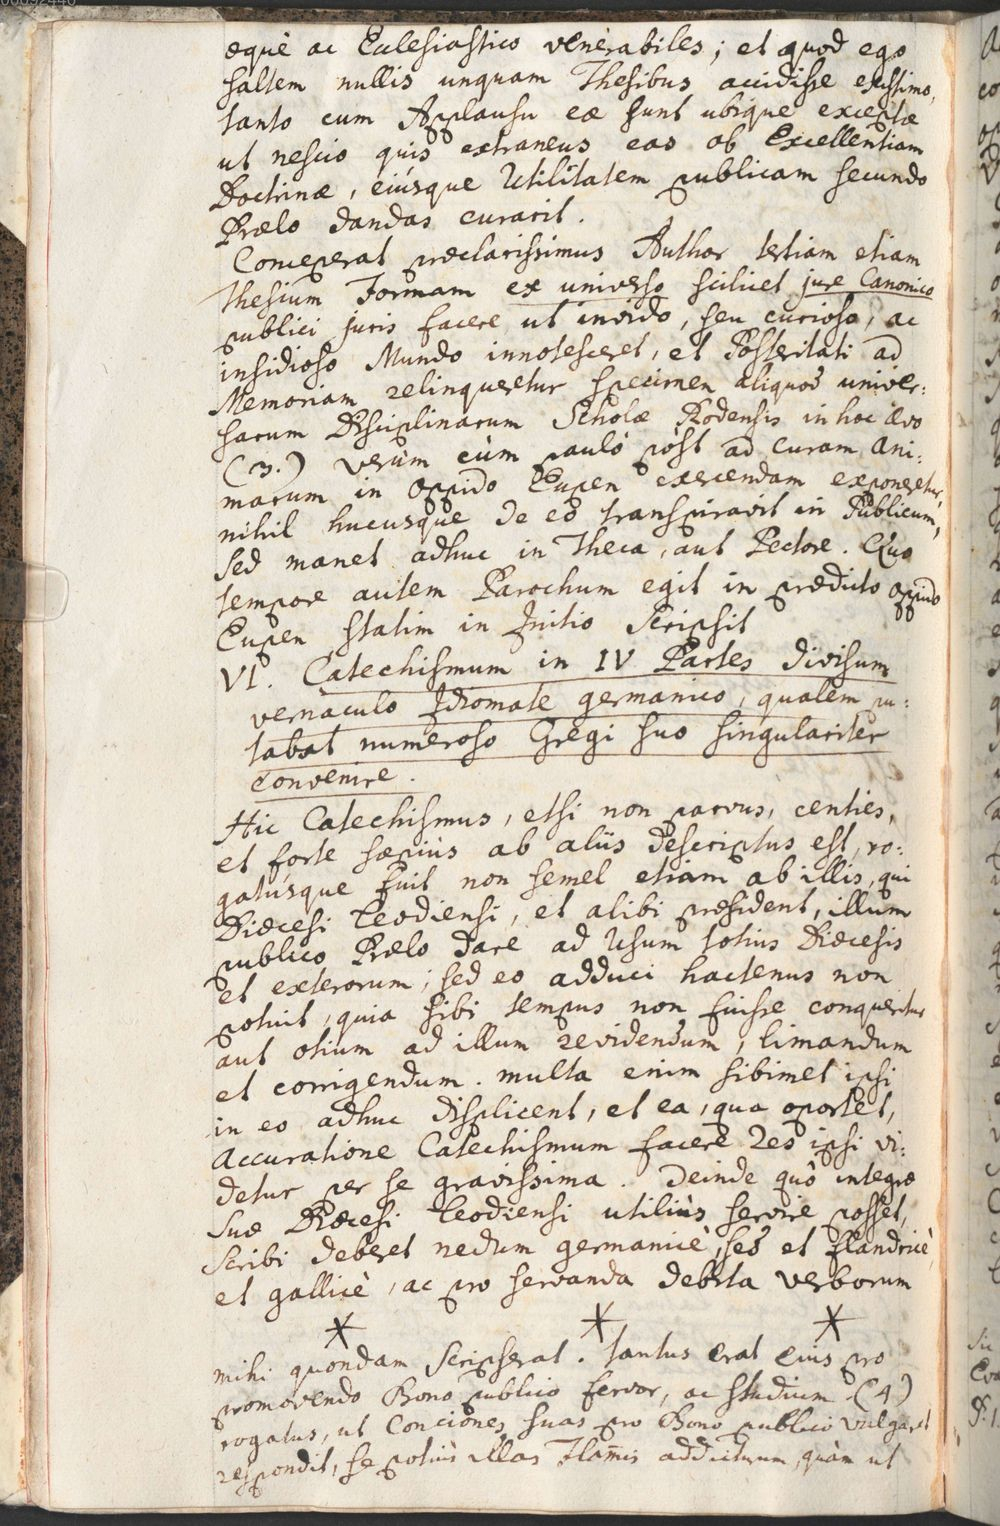 æquè ac Eclesiastico venerabiles; et quod ego
saltem nullis unquam Thesibus accidisse existimo,
tanto cum Applausu eæ sunt ubique exceptæ
ut nescio quis extraneus eas ob Excellentiam
Doctrinæ, eiúsque Utilitatem publicam secundo
Prælo dandas curarit.
Conceperat præclarissimus Author tertiam etiam
Thesium Formam ex universo scilicet jure Canonico
publici juris facere ut invido, seu curioso, ac
insidioso Mundo innotesceret, et Posteritati ad
Memoriam relinqueretur specimen aliquod univer:
sarum Disciplinarum Scholæ Rodensis in hoc ævo
(3.) verùm cùm paulò pòst ad curam Ani:
marum in Oppido Eupen exercendam exponeretur,
nihil hucusque de eo transpiravit in Publicum,
sed manet adhuc in Theca, aut Pectore. Quo
tempore autem Parochum egit in prædicto oppido
Eupen, statim in Initio Scripsit
VI. Catechismum in IV Partes divisum
vernaculo Idiomate germanico, qualem pu:
tabat numeroso Gregi suo singulariter
convenire.
Hic Catechismus, etsi non parvus, centies,
et forte sæpiùs ab aliis descriptus est, ro:
gatúsque fuit non semel etiam ab illis, qui
Diæcesi Leodiensi, et alibi præsident, illum
publico Prælo dare ad Usum totius Diæcesis
et exterorum; sed eo adduci hactenus non
potuit, quia sibi tempus non fuisse conqueritur
aut otium ad illum revidendum, limandum
et corrigendum. multa enim sibimet ipsi
in eo adhuc displicent, et ea, qua oportet,
Accuratione Catechismum facere res ipsi vi:
detur per se gravissima. Deinde quô integræ
suæ Diæcesi Leodiensi utiliùs servire posset,
Scribi deberet nedum germanicè, sed et flandricè
et gallicè, ac pro servanda debita verborum
* * *
mihi quondam Scripserat. tantus erat eius pro
promovendo Bono publico fervor, ac studium. (4)
rogatus, ut Conciones suas pro Bono publico vulgaret
respondit, se potiùs illas Flam̃is addicturum, quàm ut